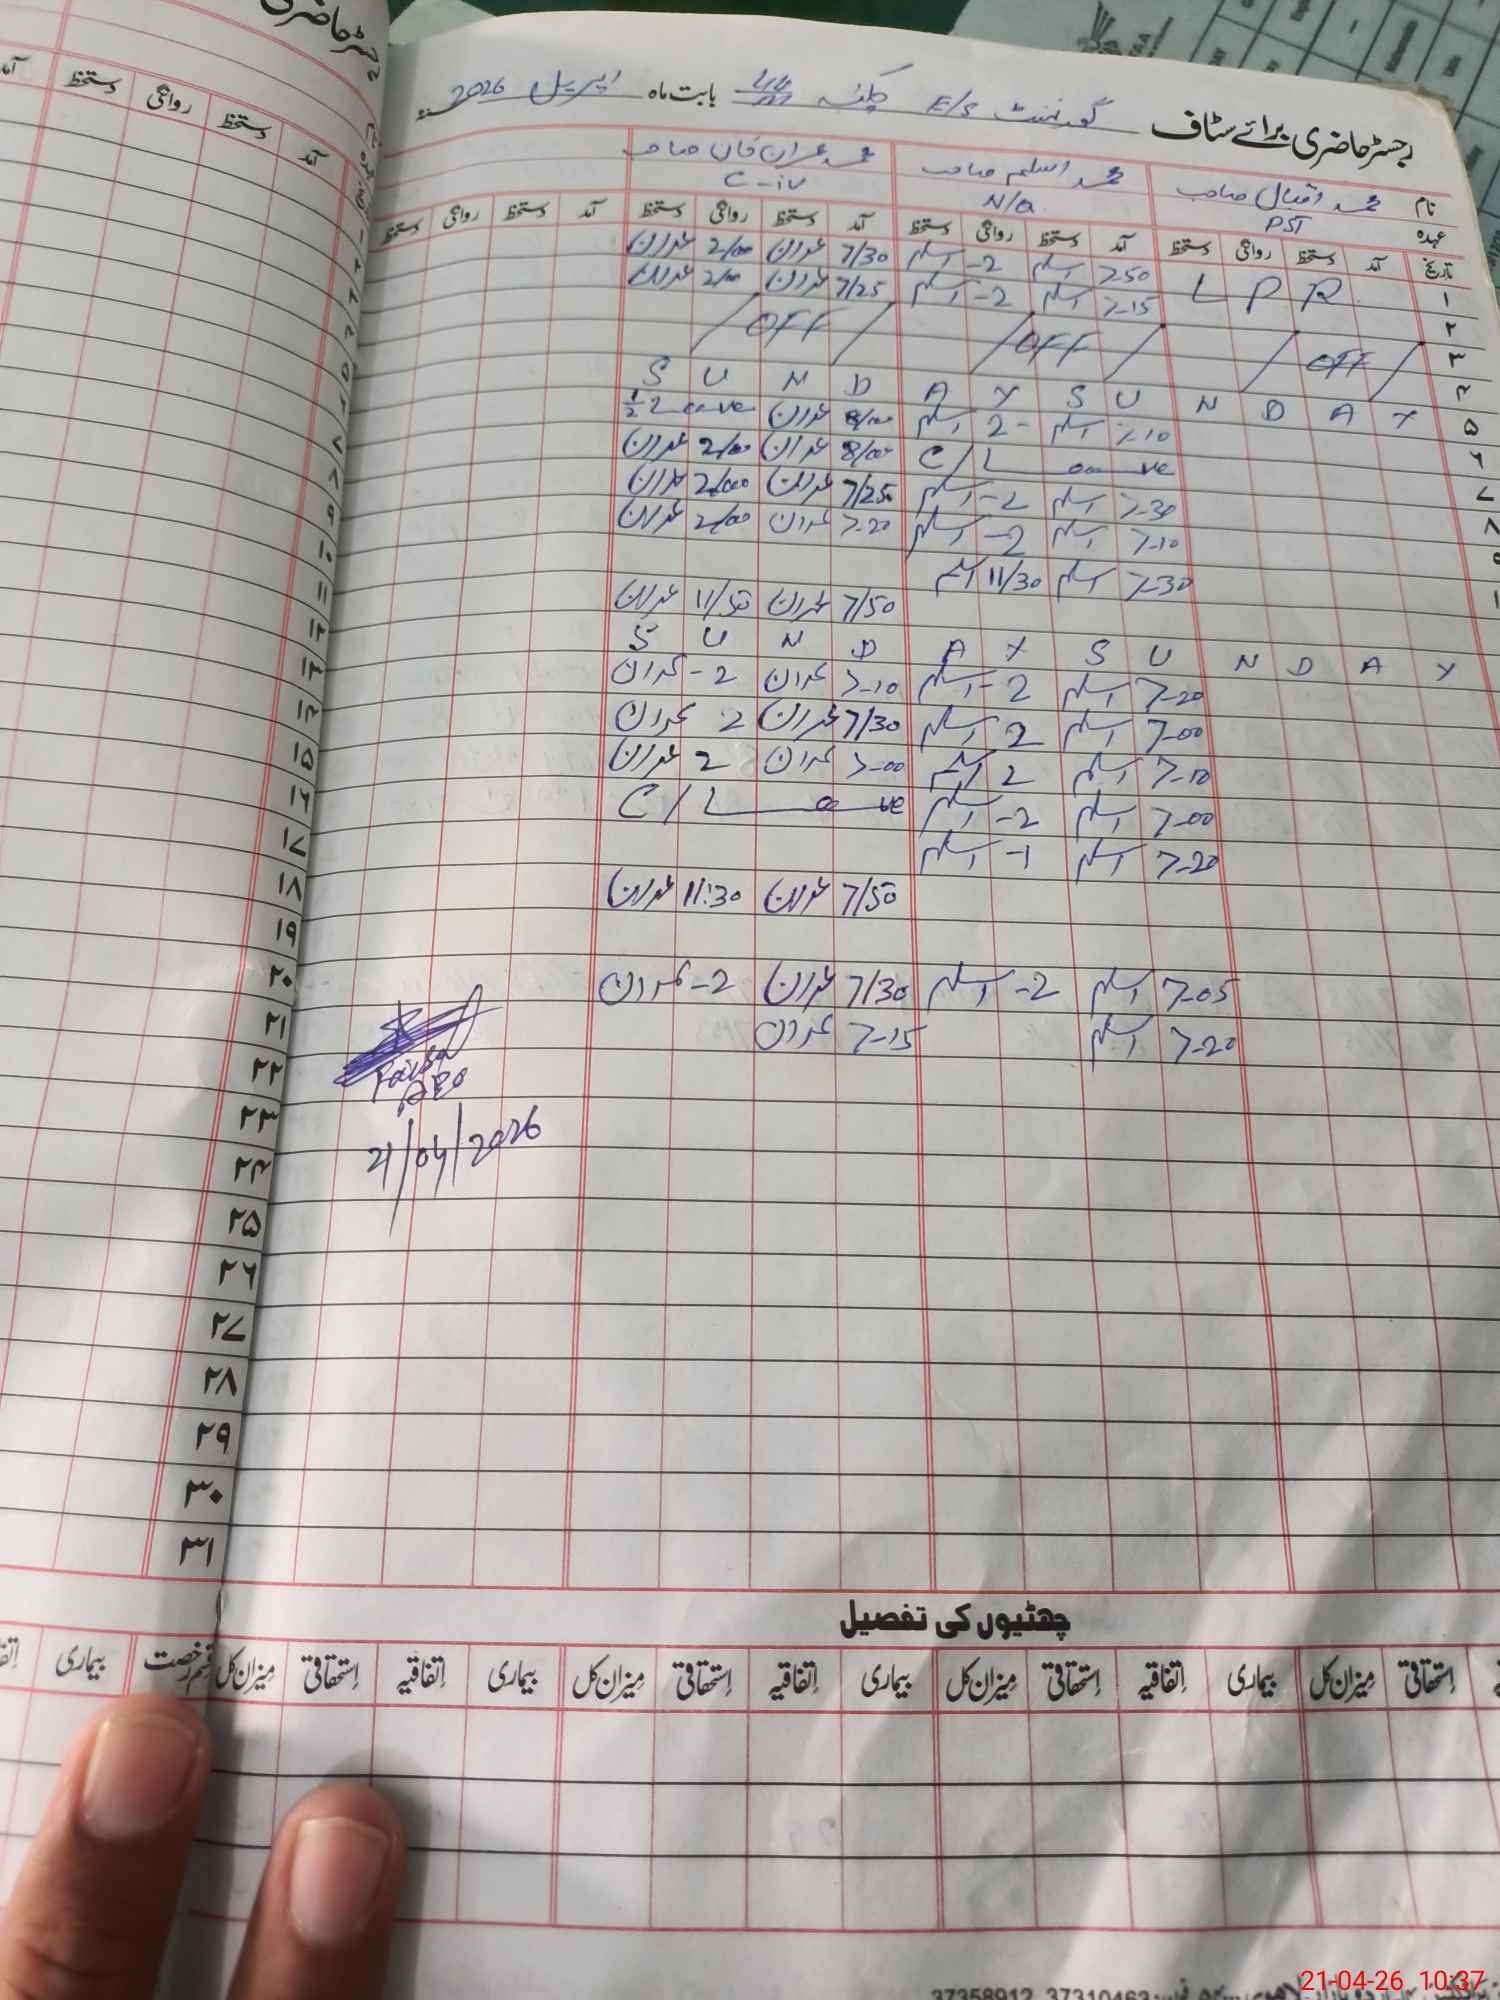 رجسٹر حاضری برائے سٹاف گورنمنٹ E/S بابت ماہ اپریل 2026
نام محمد اقبال صاحب محمد اسلم صاحب محمد عمران خان صاحب
عہدہ PST N/Q C-iv
تاریخ آمد دستخط روانگی دستخط آمد دستخط روانگی دستخط آمد دستخط روانگی دستخط آمد دستخط روانگی دستخط
۱ L P R 7-50 اسلم 2- اسلم 7/30 عمران 2/00 عمران
۲ 7-15 اسلم 2- اسلم 7/25 عمران 2/00 عمران
۳ OFF OFF OFF
۴
۵ S U N D A Y S U N D A Y
۶ 7-10 اسلم 2- اسلم 8/00 عمران 1/2 Leave
۷ C/Leave 8/00 عمران 2/00 عمران
۸ 7-30 اسلم 2- اسلم 7/25 عمران 2/00 عمران
۹ 7-10 اسلم 2- اسلم 7-20 عمران 2/00 عمران
۱۰ 7-30 اسلم 11/30 اسلم
۱۱ 7/50 عمران 11/50 عمران
۱۲ S U N D A Y S U N D A Y
۱۳ 7-20 اسلم 2- اسلم 7-10 عمران 2- عمران
۱۴ 7-00 اسلم 2 اسلم 7/30 عمران 2 عمران
۱۵ 7-10 اسلم 2 اسلم 7-00 عمران 2 عمران
۱۶ 7-00 اسلم 2- اسلم C/Leave
۱۷ 7-20 اسلم 1- اسلم
۱۸ 7/50 عمران 11:30 عمران
۱۹
۲۰ 7-05 اسلم 2- اسلم 7/30 عمران 2- عمران
۲۱ 7-20 اسلم 7-15 عمران
۲۲
AEO
۲۳
21/04/2026
۲۴
۲۵
۲۶
۲۷
۲۸
۲۹
۳۰
۳۱
چھٹیوں کی تفصیل
استحقاقی میزان کل بیماری اتفاقیہ استحقاقی میزان کل بیماری اتفاقیہ استحقاقی میزان کل بیماری اتفاقیہ استحقاقی میزان کل قسم رخصت بیماری
37358912 37310463
21-04-26 10:37